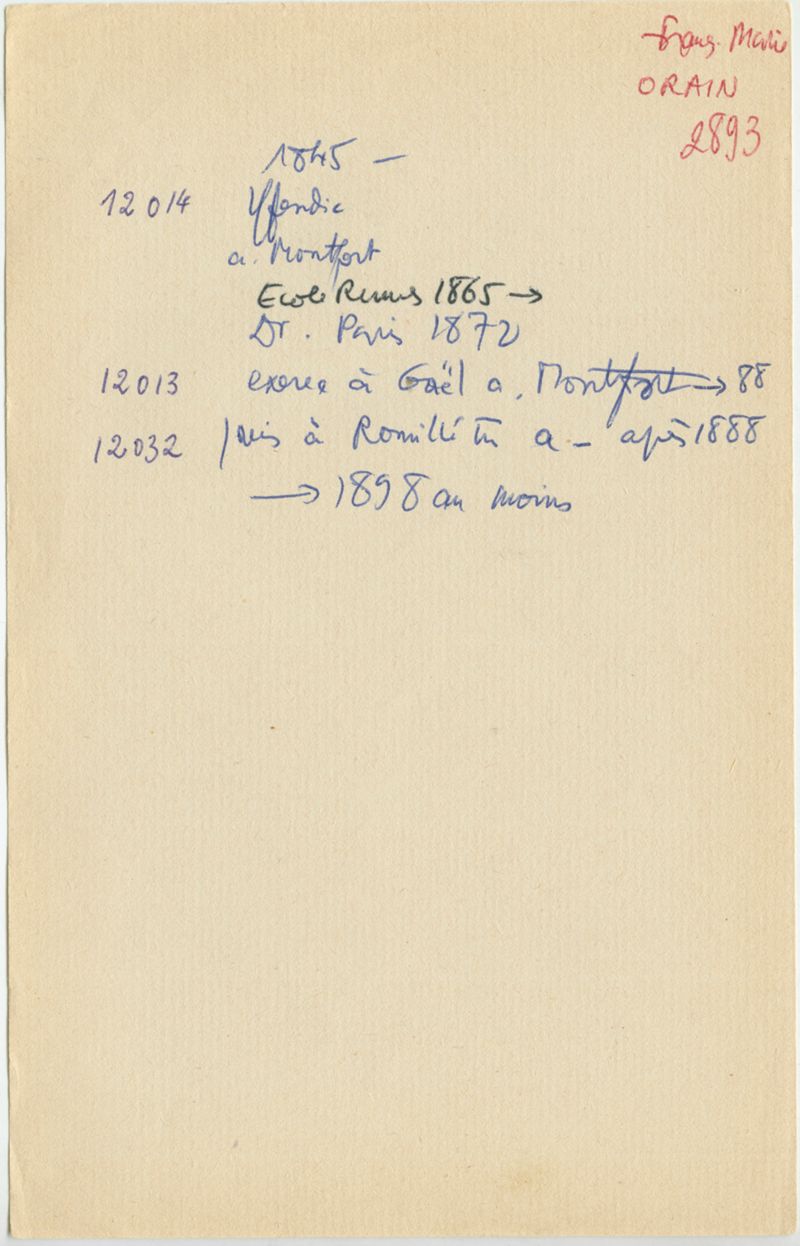 Franç. Marie
ORAIN
2893
1845 –
12 014 Iffendic
a. Montfort
Ecole Rennes 1865 →
Dr. Paris 1872
12013 exerce à Gaël a. Montfort → 88
12032 puis à Romillé a – après 1888
→ 1898 au moins